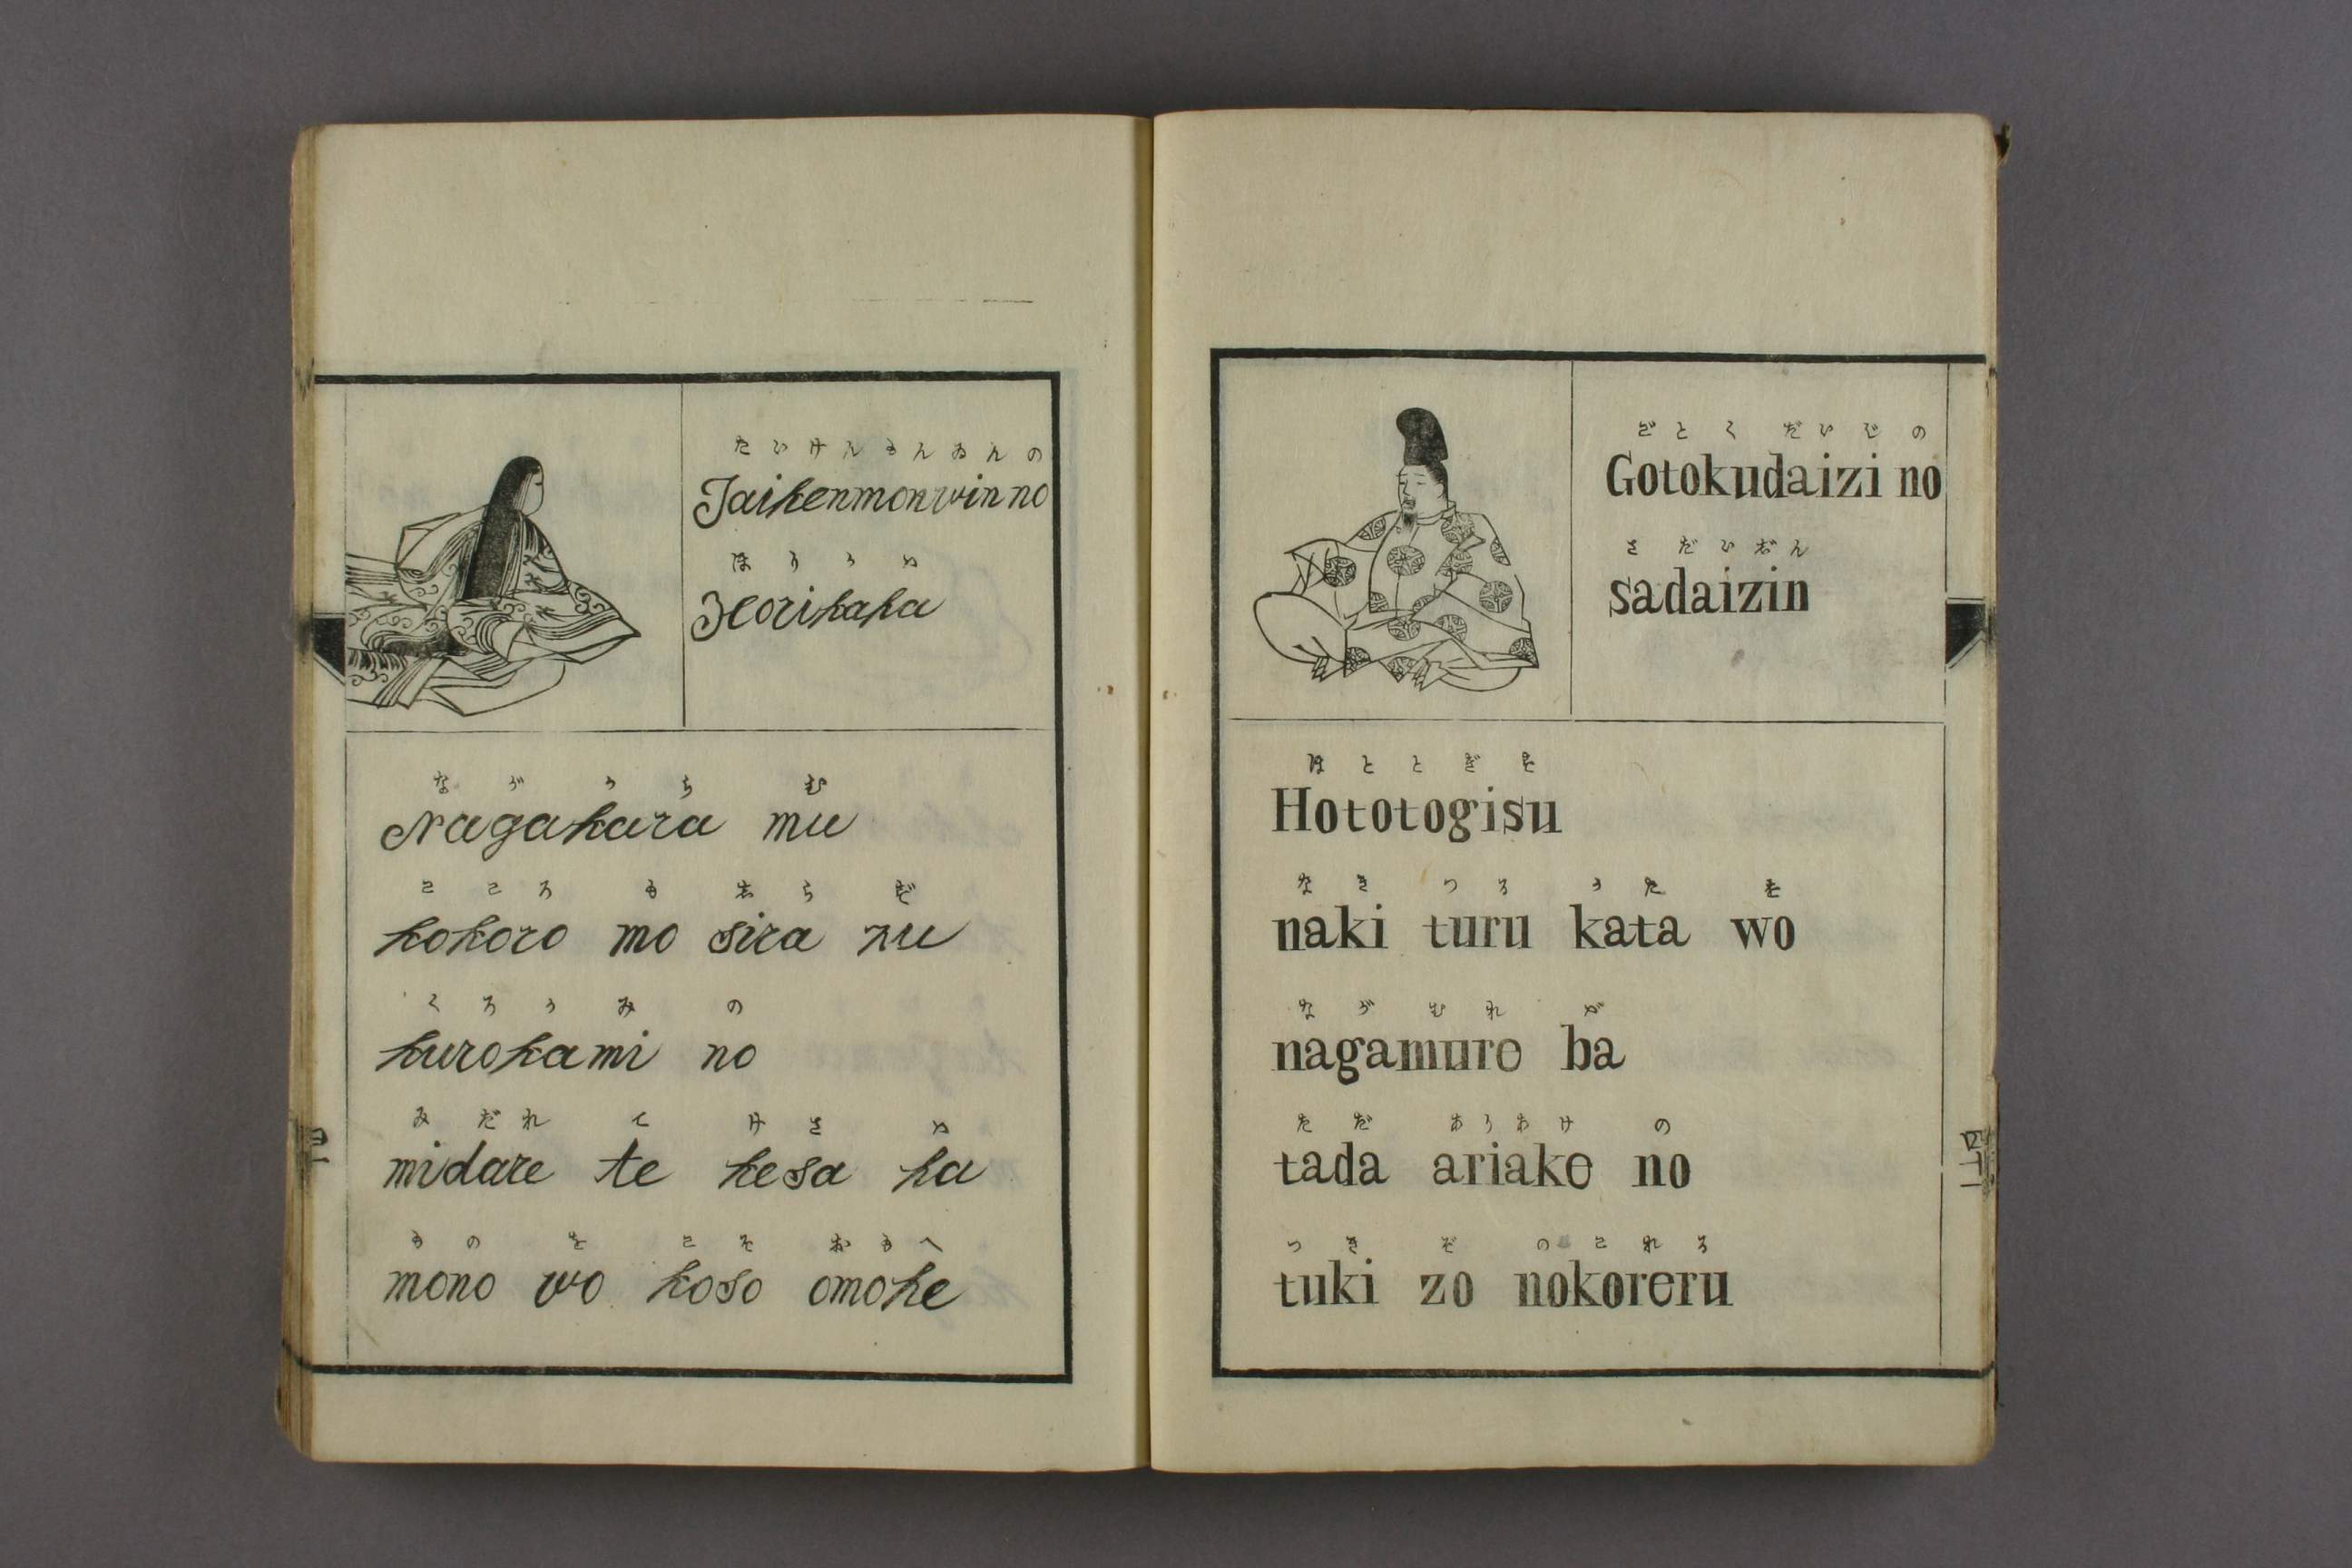 たいけんもんゐんの
Taikenmonwin no
ほりかは
Horikaha
ながからむ
Nagakara mu
こころもしらず
kokoro mo sira zu
くろかみの
kurokami no
みだれてけさは
midare te kesa ha
ものをこそおもへ
mono wo koso omohe
ごとくだいじの
Gotokudaizi no
さだいじん
sadaizin
ほととぎす
Hototogisu
なきつるかたを
naki turu kata wo
ながむれば
nagamure ba
ただありあけの
tada ariake no
つきぞのこれる
tuki zo nokoreru